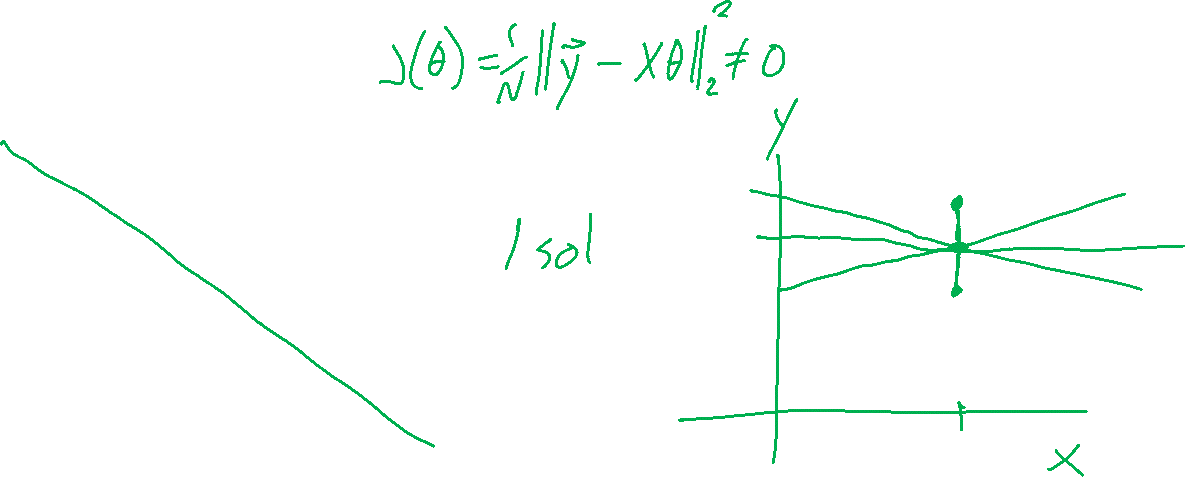 J(θ) = 1/N ||y⃗ - Xθ||₂² ≠ 0
y
1 sol
x